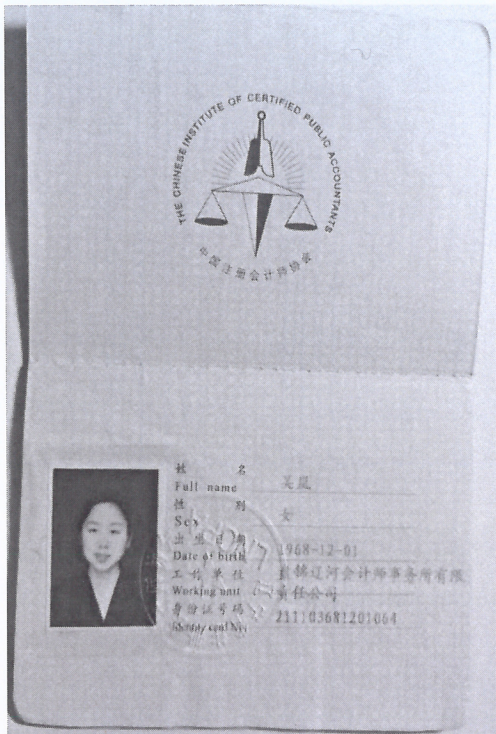 THE CHINESE INSTITUTE OF CERTIFIED PUBLIC ACCOUNTANTS
中国注册会计师协会
姓 名
Full name
吴
性 别
Sex
女
出生日期
Date of birth
1968-12-01
工作单位
Working unit
盘锦辽河会计师事务所有限
责任公司
身份证号码
Identity card No.
211103681201064